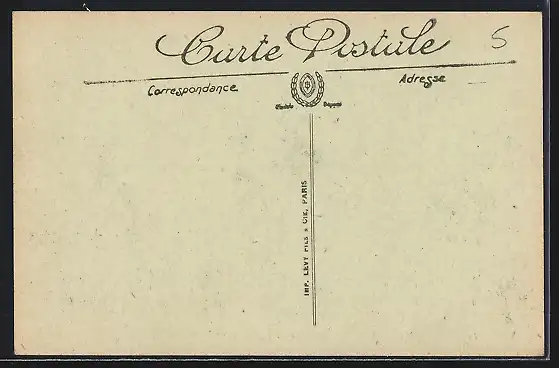 Carte Postale
5
Correspondance
Adresse
Modèle Déposé
IMP. LEVY FILS & CIE, PARIS